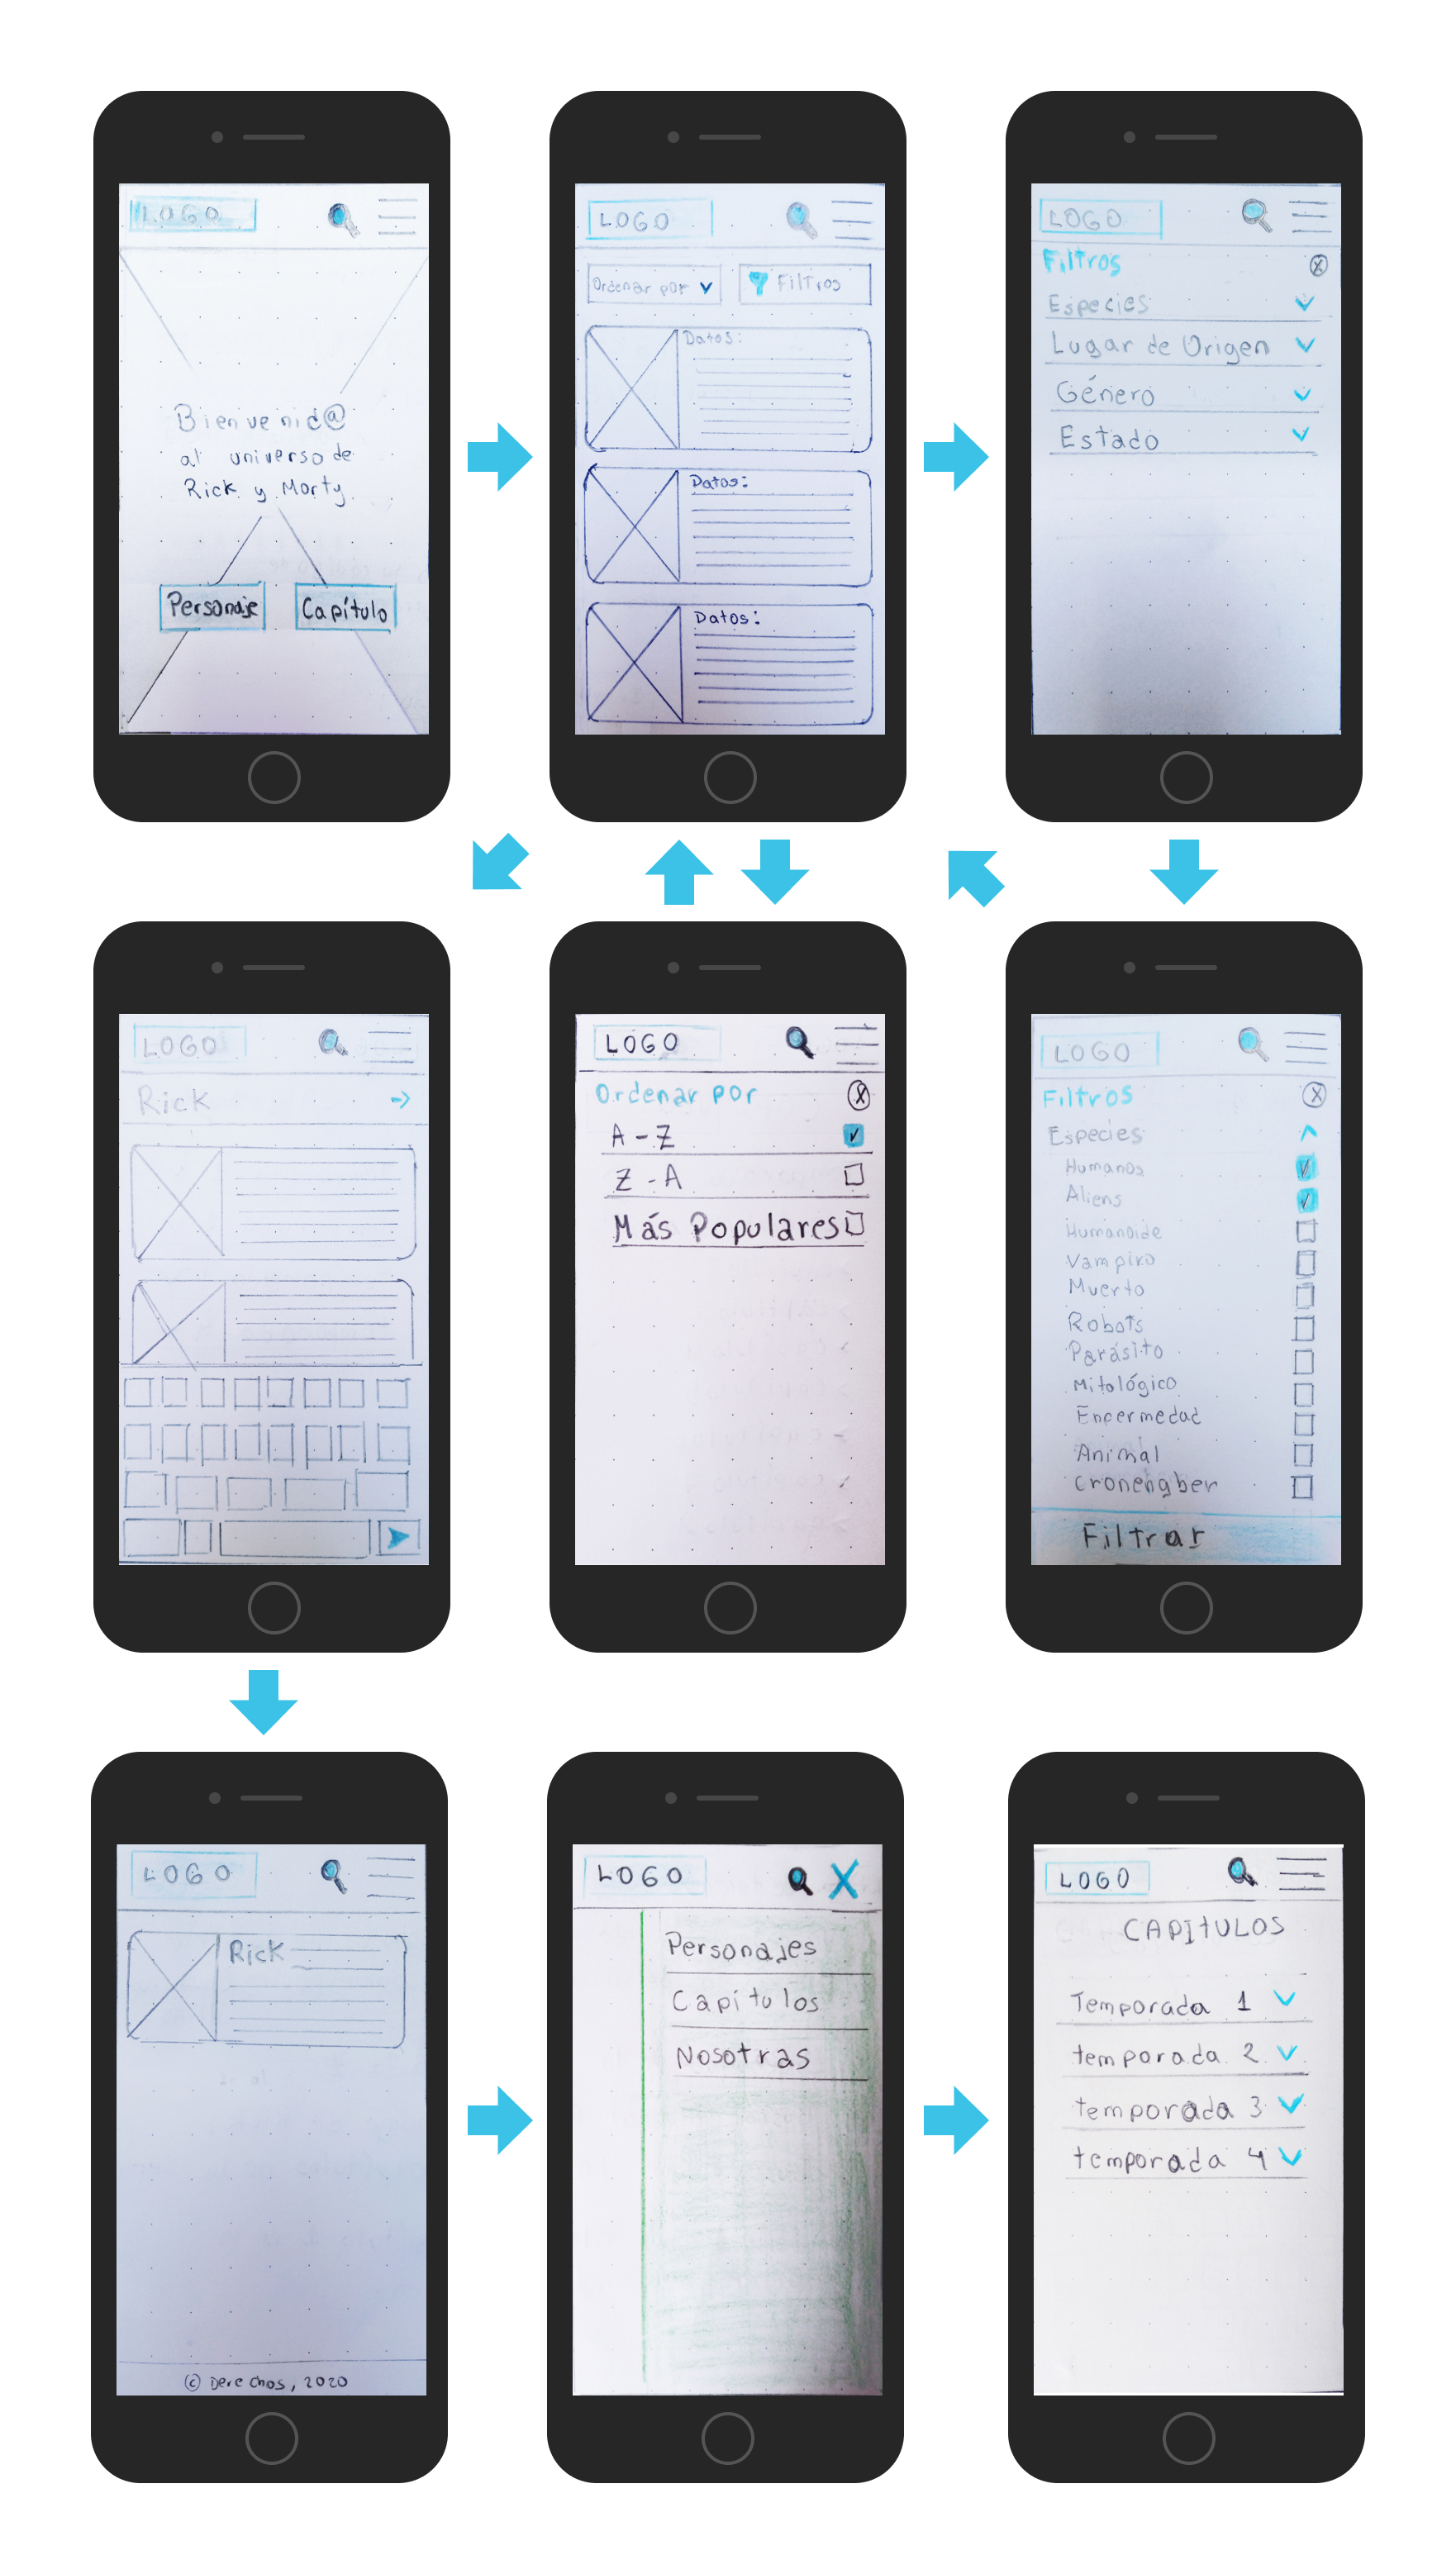 LOGO
Bienvenid@
al universo de
Rick y Morty
Personaje
Capítulo
LOGO
Ordenar por
Filtros
Datos:
Datos:
Datos:
LOGO
Filtros
Especies
Lugar de Origen
Género
Estado
LOGO
Rick
LOGO
Ordenar por
A-Z
Z-A
Más Populares
LOGO
Filtros
Especies
Humanos
Aliens
Humanoide
Vampiro
Muerto
Robots
Parásito
Mitológico
Enfermedad
Animal
Cronengber
Filtrar
LOGO
Rick
© Derechos, 2020
LOGO
Personajes
Capítulos
Nosotras
LOGO
CAPÍTULOS
Temporada 1
temporada 2
temporada 3
temporada 4